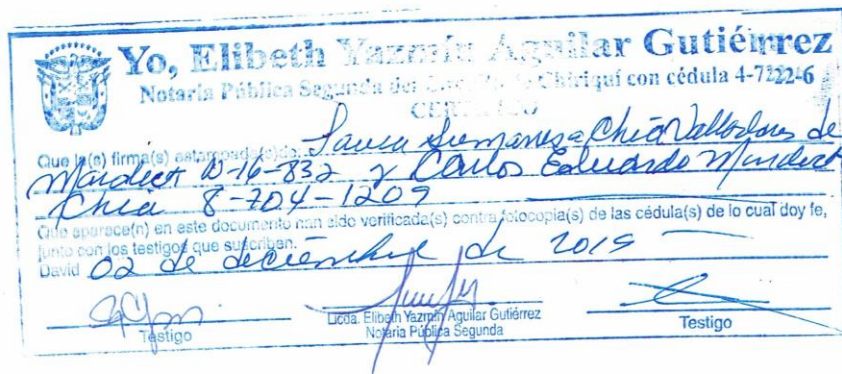 Yo, Elibeth Yazmín Aguilar Gutiérrez
Notaria Pública Segunda del Circuito de Chiriquí con cédula 4-722-6
CERTIFICO
Que la(s) firma(s) estampada(s) de: Chia Valladares de
Mardick N-16-832 y Carlos Eduardo Mardick
Chia 8-704-1209
Que aparece(n) en este documento han sido verificada(s) contra fotocopia(s) de las cédula(s) de lo cual doy fe,
junto con los testigos que suscriben.
David 02 de deciembre de 2019
Testigo
Licda. Elibeth Yazmín Aguilar Gutiérrez
Notaria Pública Segunda
Testigo